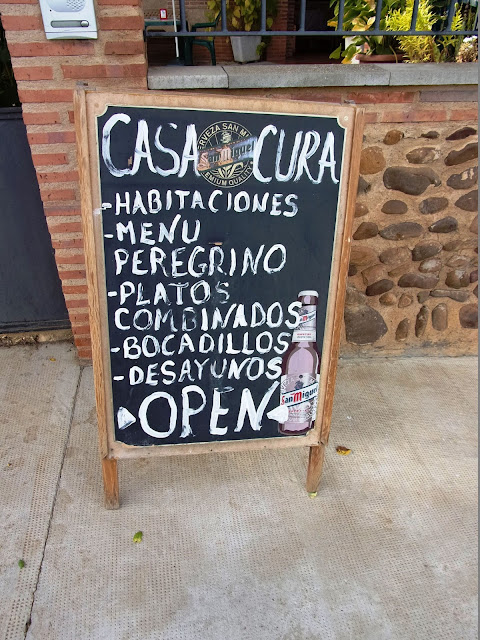 CASA CURA
CERVEZA SAN MI
San Miguel
EMIUM QUALITY
-HABITACIONES
-MENU
PEREGRINO
-PLATOS
COMBINADOS
-BOCADILLOS
-DESAYUNOS
OPEN
San Miguel